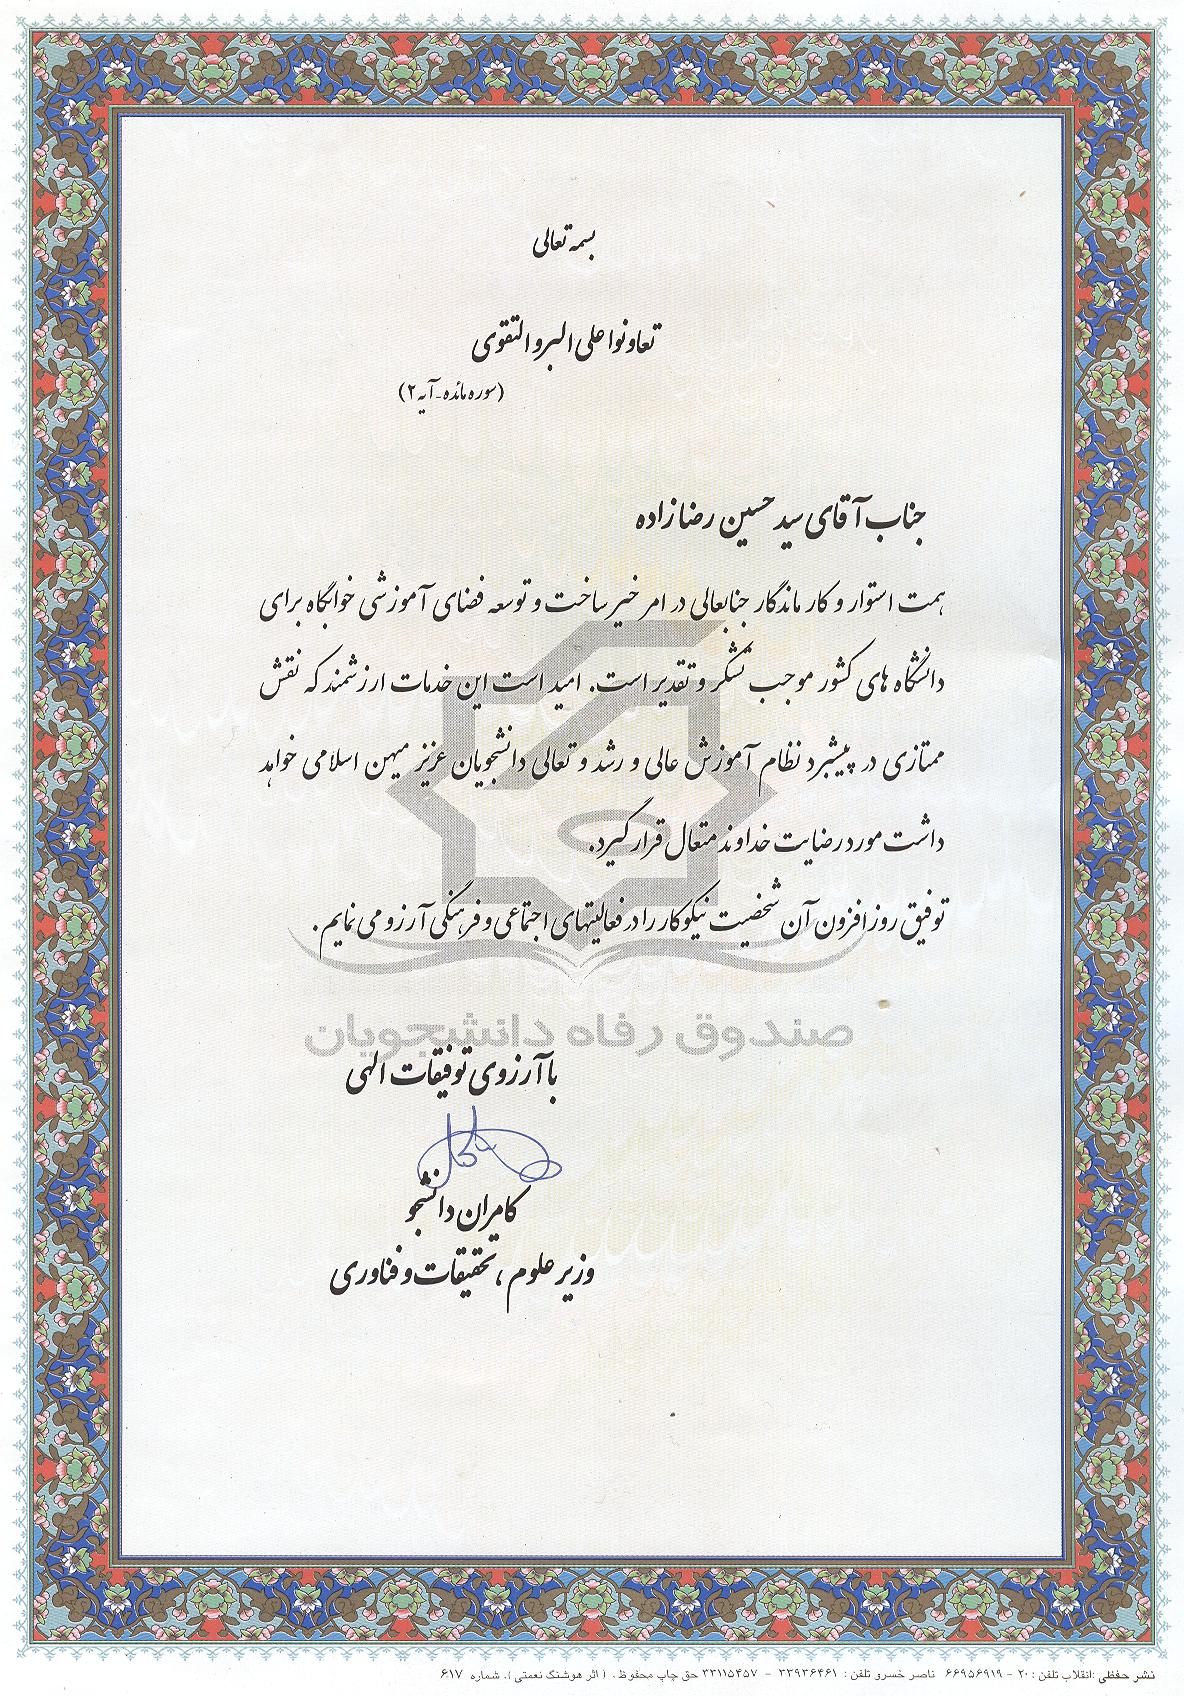 بسمه تعالی
تعاونوا علی البر و التقوی
(سوره مائده-آیه ۲)
جناب آقای سید حسین رضازاده
همت استوار و کار ماندگار جنابعالی در امر خیر ساخت و توسعه فضای آموزشی خوابگاه برای
دانشگاه های کشور موجب تشکر و تقدیر است. امید است این خدمات ارزشمند که نقش
ممتازی در پیشبرد نظام آموزش عالی و رشد و تعالی دانشجویان عزیز میهن اسلامی خواهد
داشت مورد رضایت خداوند متعال قرار گیرد.
توفیق روز افزون آن شخصیت نیکوکار را در فعالیتهای اجتماعی و فرهنگی آرزو می نمایم.
صندوق رفاه دانشجویان
با آرزوی توفیقات الهی
کامران دانشجو
وزیر علوم ، تحقیقات و فناوری
نشر حفظی :انقلاب تلفن : ۲۰ - ۶۶۹۵۶۹۱۹ ناصر خسرو تلفن : ۳۳۹۳۶۴۶۱ - ۳۳۱۱۵۴۵۷ حق چاپ محفوظ . ( اثر هوشنگ نعمتی ). شماره ۶۱۷